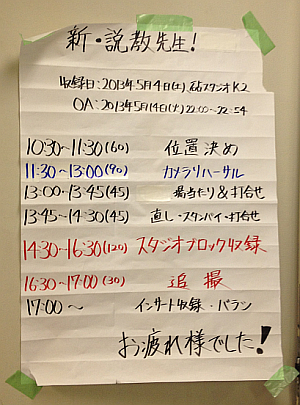 新・説教先生!
収録日:2013年5月4日(土) 砧スタジオK2
OA:2013年5月14日(火) 22:00〜22:54
10:30〜11:30(60) 位置決め
11:30〜13:00(90) カメラリハーサル
13:00〜13:45(45) 場当たり&打合せ
13:45〜14:30(45) 直し・スタンバイ・打合せ
14:30〜16:30(120) スタジオブロック収録
16:30〜17:00(30) 追撮
17:00〜 インサート収録・バラシ
お疲れ様でした!